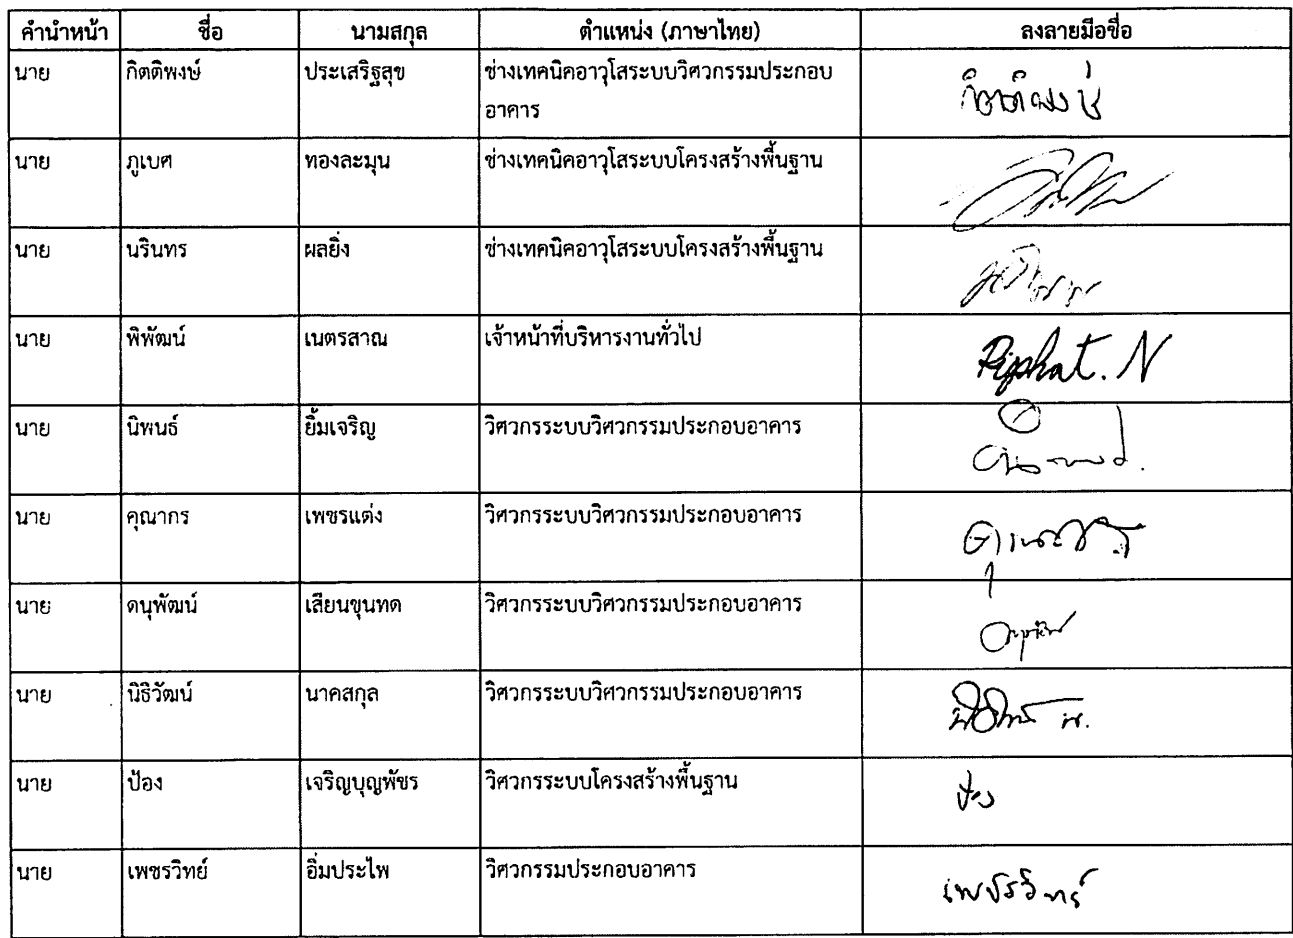 คำนำหน้า ชื่อ นามสกุล ตำแหน่ง (ภาษาไทย) ลงลายมือชื่อ
นาย กิตติพงษ์ ประเสริฐสุข ช่างเทคนิคอาวุโสระบบวิศวกรรมประกอบ กิตติพงษ์
อาคาร
นาย ภูเบศ ทองละมุน ช่างเทคนิคอาวุโสระบบโครงสร้างพื้นฐาน
นาย นรินทร ผลยิ่ง ช่างเทคนิคอาวุโสระบบโครงสร้างพื้นฐาน
นาย พิพัฒน์ เนตรสาณ เจ้าหน้าที่บริหารงานทั่วไป Piphat. N
นาย นิพนธ์ ยิ้มเจริญ วิศวกรระบบวิศวกรรมประกอบอาคาร
นาย คุณากร เพชรแต่ง วิศวกรระบบวิศวกรรมประกอบอาคาร
นาย ดนุพัฒน์ เสียนขุนทด วิศวกรระบบวิศวกรรมประกอบอาคาร
นาย นิธิวัฒน์ นาคสกุล วิศวกรระบบวิศวกรรมประกอบอาคาร
นาย ป้อง เจริญบุญพัชร วิศวกรระบบโครงสร้างพื้นฐาน ป้อง
นาย เพชรวิทย์ อิ่มประไพ วิศวกรรมประกอบอาคาร เพชรวิทย์